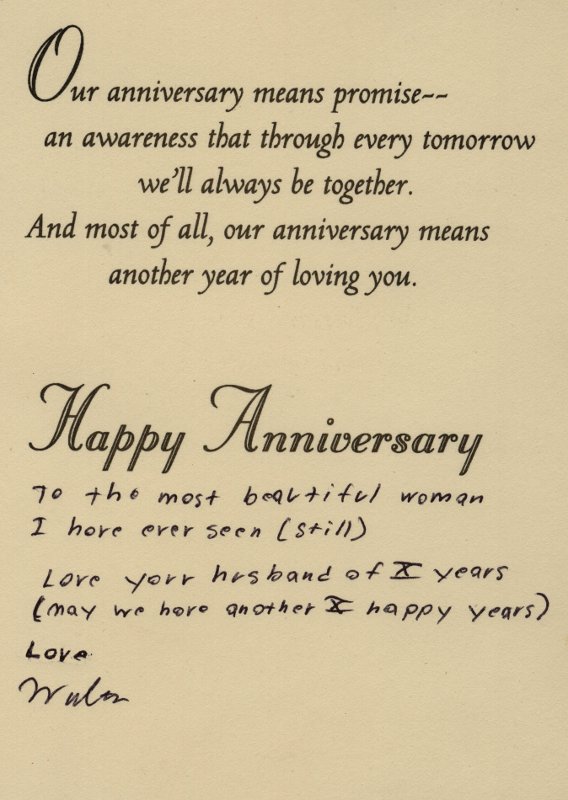 Our anniversary means promise--
an awareness that through every tomorrow
we'll always be together.
And most of all, our anniversary means
another year of loving you.
Happy Anniversary
To the most beautiful woman
I have ever seen (still)
Love your husband of X years
(may we have another X happy years)
Love